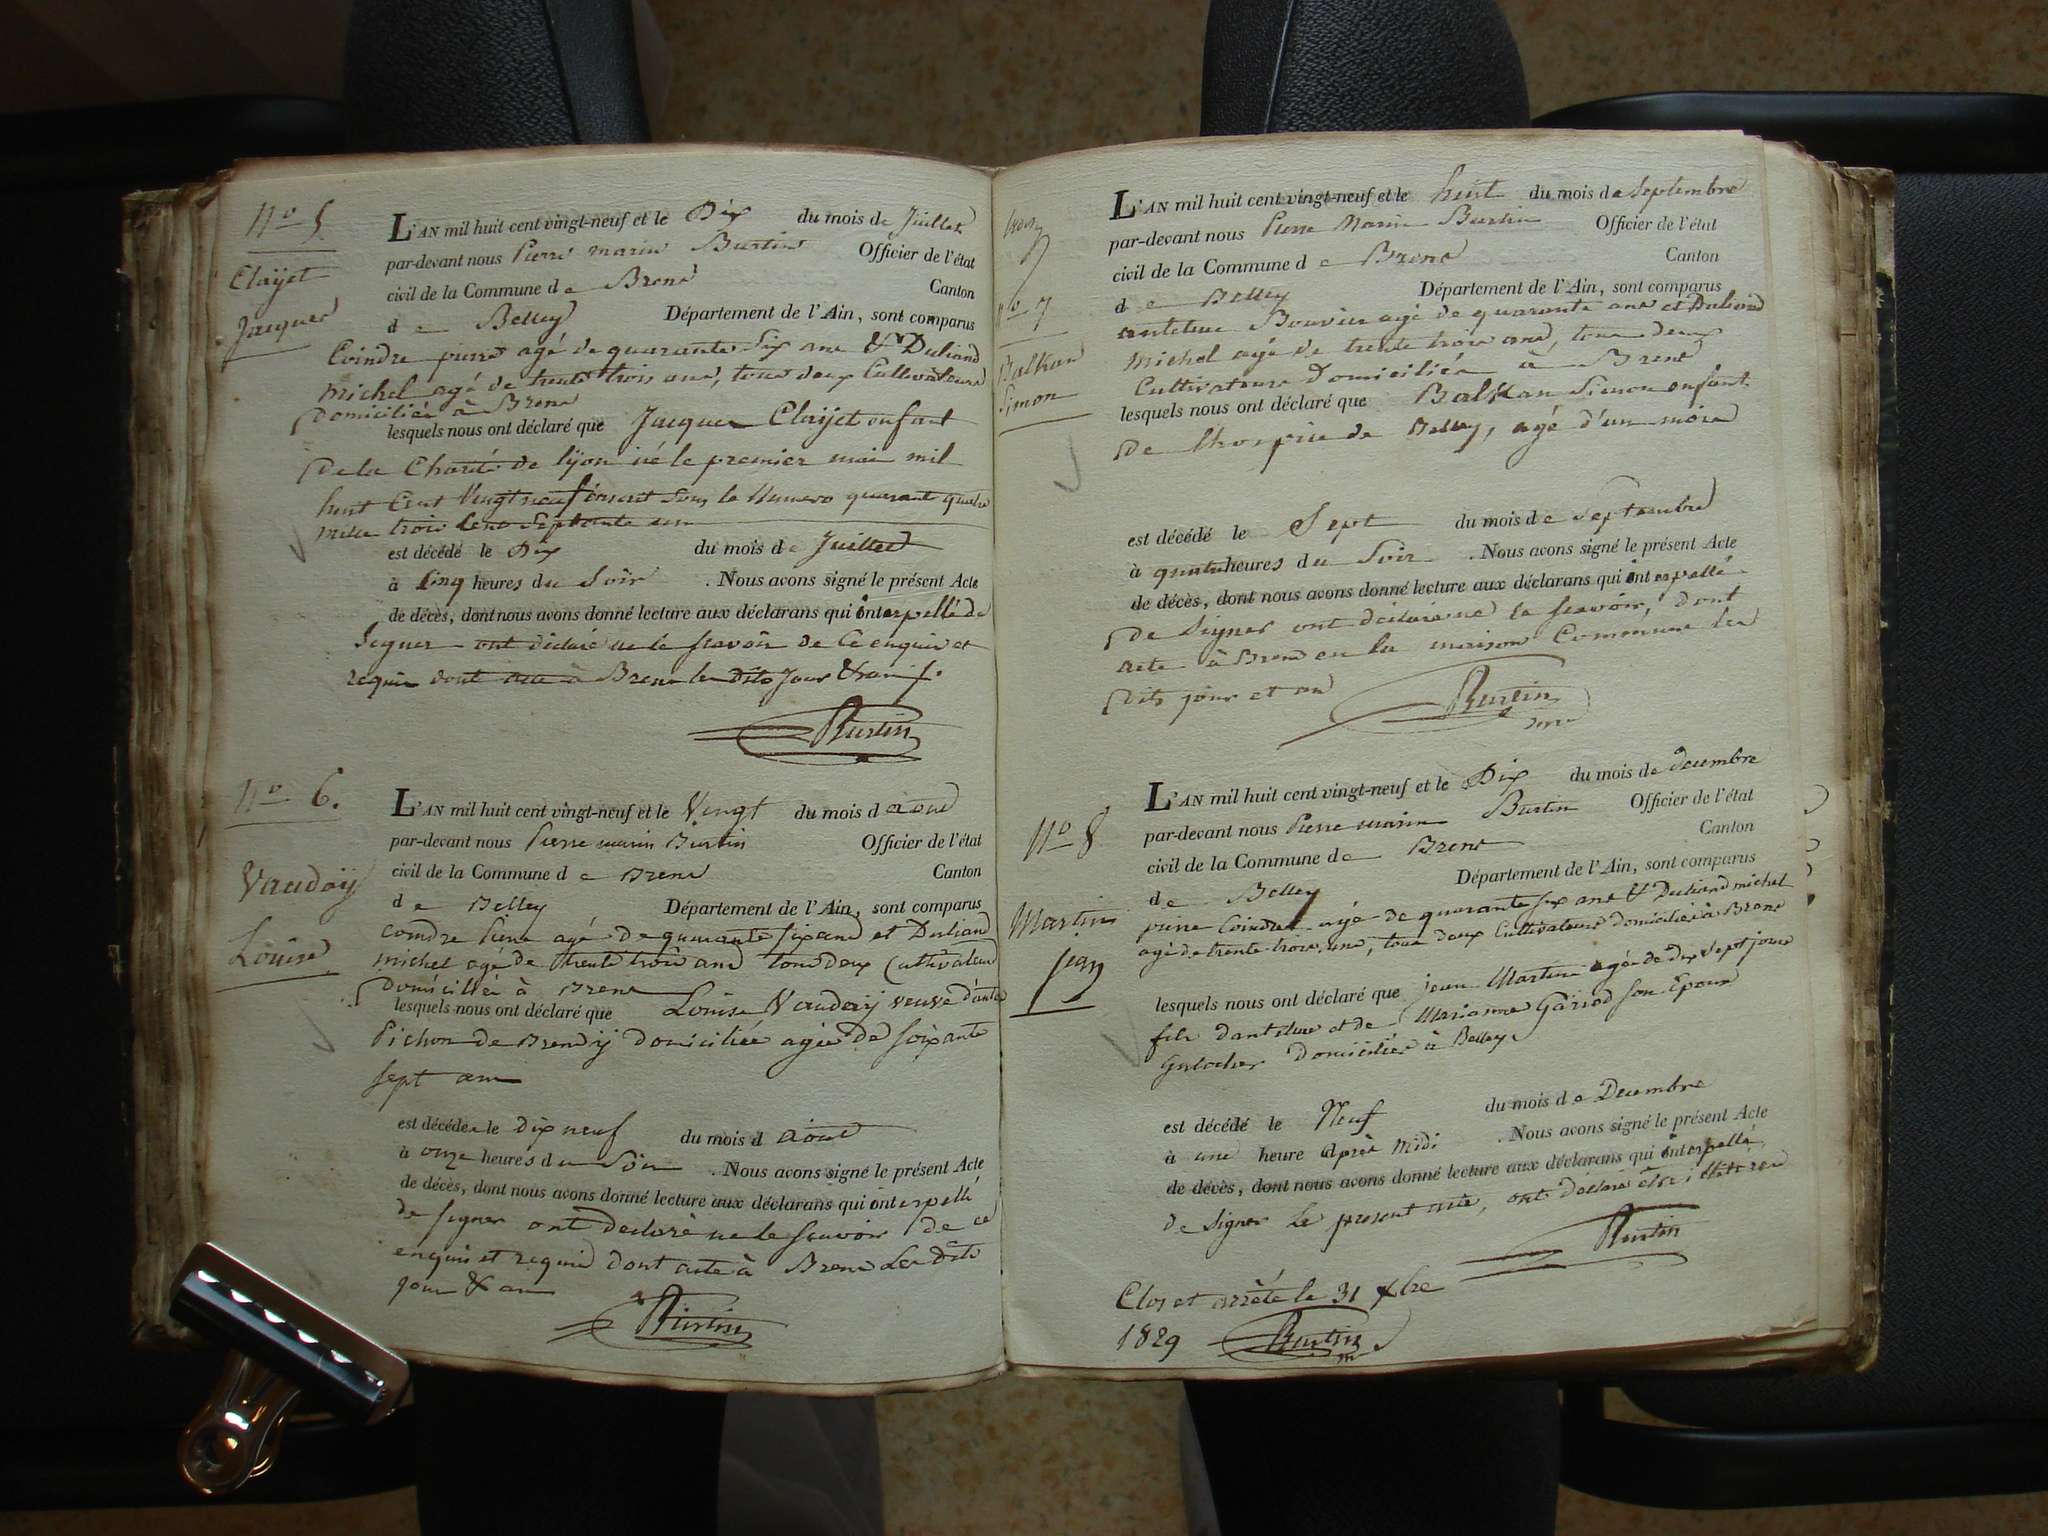 No 5.
Clayet
Jacques
L'AN mil huit cent vingt-neuf et le Dix du mois de Juillet
par-devant nous Pierre marin Burtin Officier de l'état
civil de la Commune de Brens Canton
de Belley Département de l'Ain, sont comparus
Coindre pierre agé de quarante Six ans & Duliand
michel agé de trente trois ans, tous deux Cultivateurs
Domiciliés à Brens
lesquels nous ont déclaré que Jacques Clayet enfant
De la Charité de lyon né le premier mai mil
huit Cent Vingt neuf sous le Numero quarante quatre
mille trois Cent Septante un
est décédé le Dix du mois de Juillet
à Cinq heures du Soir . Nous avons signé le présent Acte
de décès, dont nous avons donné lecture aux déclarans qui interpellé de
Signer ont déclaré ne le scavoir de Ce enquis et
requis dont acte à Brens les dits Jour & an f.
Burtin
No 6.
Vauday
Louise
L'AN mil huit cent vingt-neuf et le Vingt du mois d aout
par-devant nous Pierre marin Burtin Officier de l'état
civil de la Commune de Brens Canton
de Belley Département de l'Ain, sont comparus
Coindre Pierre agé De quarante six ans et Duliand
michel agé de trente trois ans tous deux Cultivateurs
Domiciliés à Brens
lesquels nous ont déclaré que Louise Vauday veuve d'ant
Pichon de Brens y domiciliée agée De soixante
sept ans
est décédée le dix neuf du mois d aout
à onze heures du Soir . Nous avons signé le présent Acte
de décès, dont nous avons donné lecture aux déclarans qui interpellé
de signer ont declaré ne le scavoir De ce
enquis et requis Dont acte à Brens Les Dits
jour & an
Burtin
No 7
Balkan
Simon
L'AN mil huit cent vingt-neuf et le huit du mois de Septembre
par-devant nous Pierre Marin Burtin Officier de l'état
civil de la Commune de Brens Canton
de Belley Département de l'Ain, sont comparus
antelme Bouvier agé de quarante ans et Duliand
Michel agé de trente trois ans, tous deux
Cultivateurs Domiciliés à Brens
lesquels nous ont déclaré que Balkan Simon enfant
De l'hospice de Belley, agé d'un mois
est décédé le Sept du mois de Septembre
à quatre heures du Soir . Nous avons signé le présent Acte
de décès, dont nous avons donné lecture aux déclarans qui interpellé
De Signer ont déclaré ne le scavoir, Dont
acte à Brens en la maison Commune les
Dits jour et an
Burtin
No 8
Martin
jean
L'AN mil huit cent vingt-neuf et le Dix du mois de decembre
par-devant nous Pierre marin Burtin Officier de l'état
civil de la Commune de Brens Canton
de Belley Département de l'Ain, sont comparus
pierre Coindre agé de quarante six ans & Duliand michel
agé de trente trois ans, tous deux Cultivateurs domiciliés à Brens
lesquels nous ont déclaré que jean Martin agée de dix sept jours
fils d'antelme et de Marianne Gariod son Epouse
Galocher Domiciliés à Belley.
est décédé le Neuf du mois de Decembre
à une heure Après midi . Nous avons signé le présent Acte
de décès, dont nous avons donné lecture aux déclarans qui interpellé
de Signer le present acte, ont Déclaré être illitérés
Burtin
Clos et arrêté le 31 Xbre
1829 Burtin